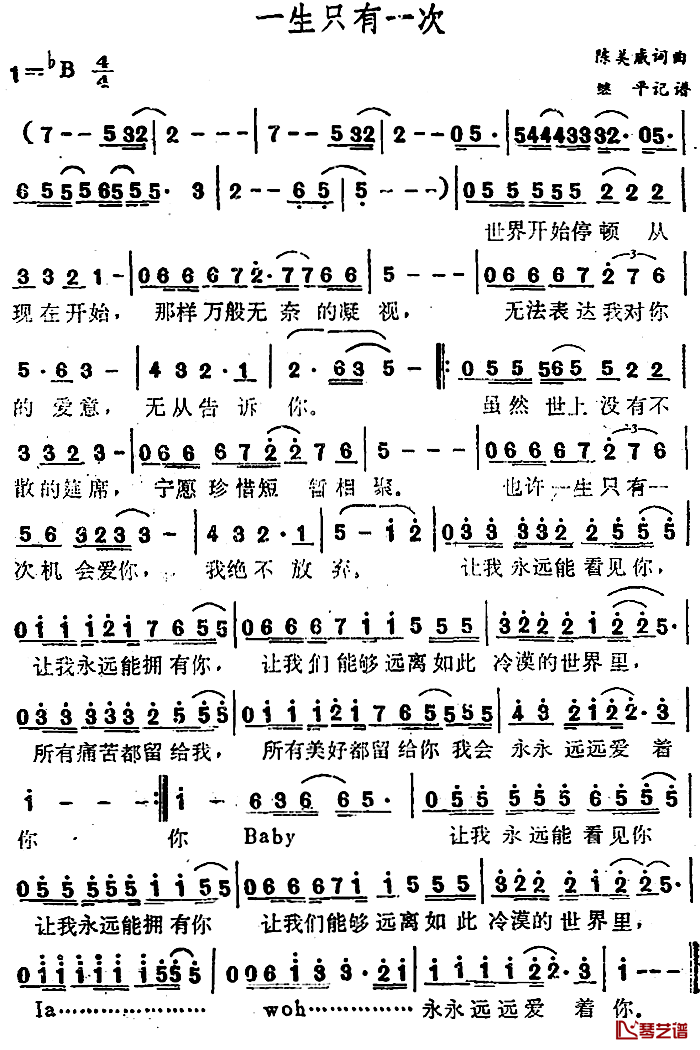 一生只有一次
1=♭B 4/4
陈美威词曲
继 平记谱
(7--532|2---|7--532|2--05·|54443332·05·|
65556555·3|2--65|5---)|055555222|
世界开始停顿 从
3321-|066672·7766|5---|06667276|
现在开始, 那样万般无奈的凝视, 无法表达我对你
5·63-|432·1|2·635-|:05556522|
的爱意, 无从告诉你。 虽然世上没有不
3323-|06667226|5---|06667276|
散的筵席, 宁愿珍惜短暂相聚。 也许一生只有一
563233-|432·1|5-12|033332255 5|
次机会爱你, 我绝不放弃。 让我永远能看见你,
01112176 55|0666711555|32221225·|
让我永远能拥有你, 让我们能够远离如此 冷漠的世界里,
033333225 55|01112176 5555|432122·3|
所有痛苦都留给我, 所有美好都留给你 我会 永永远远爱着
1---:|1-636 65·|0555556555|
你· 你 Baby 让我永远能看见你
05555511 55|0666711555|32221225·|
让我永远能拥有你 让我们能够远离如此 冷漠的世界里,
0111111155|006133·21|111122·3|1--‖
Ia………………… woh……………永永远远爱着你。
琴艺谱